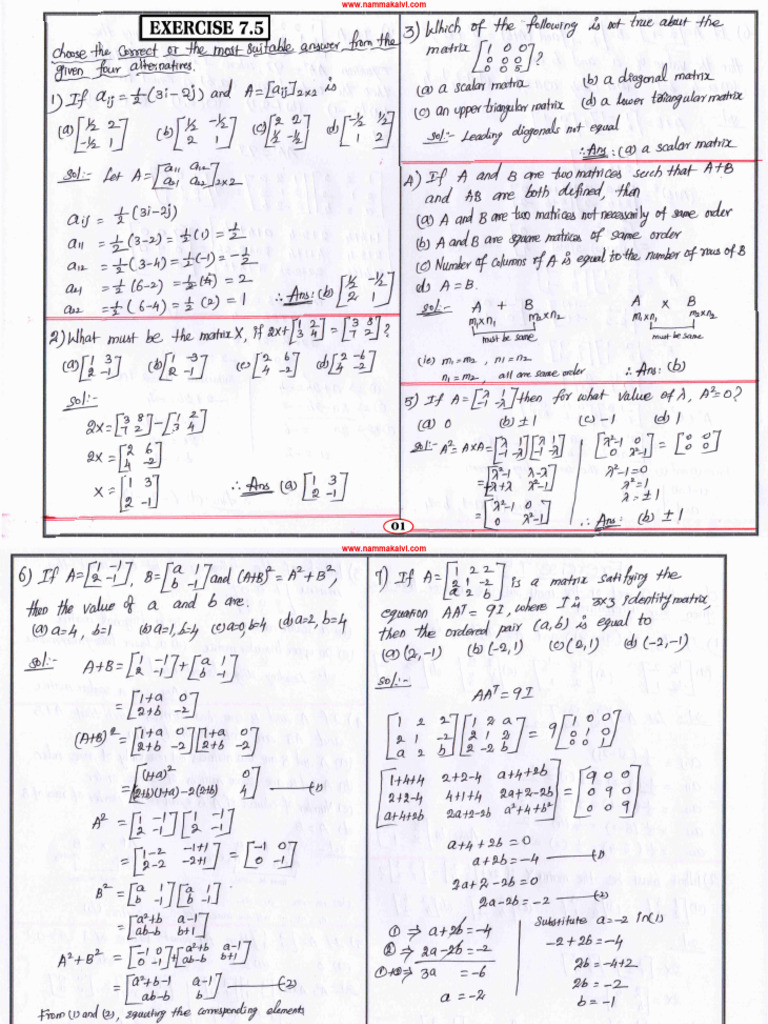 www.nammakalvi.com
EXERCISE 7.5
Choose the correct or the most suitable answer from the
given four alternatives.
1) If aij = 1/2 (3i - 2j) and A = [aij]2x2 is
(a) [1/2 2; -1/2 1] (b) [1/2 -1/2; 2 1] (c) [2 2; 1/2 -1/2] (d) [-1/2 1/2; 1 2]
Sol:- Let A = [a11 a12; a21 a22]2x2
aij = 1/2 (3i - 2j)
a11 = 1/2 (3-2) = 1/2 (1) = 1/2
a12 = 1/2 (3-4) = 1/2 (-1) = -1/2
a21 = 1/2 (6-2) = 1/2 (4) = 2
a22 = 1/2 (6-4) = 1/2 (2) = 1 ∴ Ans: (b) [1/2 -1/2; 2 1]
2) What must be the matrix X, if 2x + [1 2; 3 4] = [3 8; 7 2]?
(a) [1 3; 2 -1] (b) [1 -3; 2 -1] (c) [2 6; 4 -2] (d) [2 -6; 4 -2]
Sol:-
2x = [3 8; 7 2] - [1 2; 3 4]
2x = [2 6; 4 -2]
x = [1 3; 2 -1] ∴ Ans (a) [1 3; 2 -1]
3) Which of the following is not true about the
matrix [1 0 0; 0 0 0; 0 0 5]?
(a) a scalar matrix (b) a diagonal matrix
(c) an upper triangular matrix (d) a lower triangular matrix
Sol:- Leading diagonals not equal
∴ Ans: (a) a scalar matrix
4) If A and B are two matrices such that A+B
and AB are both defined, then
(a) A and B are two matrices not necessarily of same order
(b) A and B are square matrices of same order
(c) Number of columns of A is equal to the number of rows of B
(d) A = B.
Sol:- A + B A x B
m1xn1 m2xn2 m1xn1 m2xn2
must be same must be same
(ie) m1 = m2, n1 = n2
n1 = m2, all are same order ∴ Ans: (b)
5) If A = [λ 1; -1 -λ] then for what value of λ, A² = 0?
(a) 0 (b) ±1 (c) -1 (d) 1
Sol:- A² = AxA = [λ 1; -1 -λ][λ 1; -1 -λ]
= [λ²-1 λ-λ; -λ+λ λ²-1]
= [λ²-1 0; 0 λ²-1]
[λ²-1 0; 0 λ²-1] = [0 0; 0 0]
λ²-1 = 0
λ² = 1
λ = ±1
∴ Ans: (b) ±1
01
www.nammakalvi.com
6) If A = [1 -1; 2 -1], B = [a 1; b -1] and (A+B)² = A² + B²,
then the value of a and b are:
(a) a=4, b=1 (b) a=1, b=4 (c) a=0, b=4 (d) a=2, b=4
Sol:-
A+B = [1 -1; 2 -1] + [a 1; b -1]
= [1+a 0; 2+b -2]
(A+B)² = [1+a 0; 2+b -2][1+a 0; 2+b -2]
= [(1+a)² 0; (2+b)(1+a)-2(2+b) 4] —(1)
A² = [1 -1; 2 -1][1 -1; 2 -1]
= [1-2 -1+1; 2-2 -2+1] = [-1 0; 0 -1]
B² = [a 1; b -1][a 1; b -1]
= [a²+b a-1; ab-b b+1]
A²+B² = [-1 0; 0 -1] + [a²+b a-1; ab-b b+1]
= [a²+b-1 a-1; ab-b b] —(2)
From (1) and (2), equating the corresponding elements
7) If A = [1 2 2; 2 1 -2; a 2 b] is a matrix satisfying the
equation AAT = 9I, where I is 3x3 identity matrix,
then the ordered pair (a, b) is equal to
(a) (2, -1) (b) (-2, 1) (c) (2, 1) (d) (-2, -1)
Sol:-
AAT = 9I
[1 2 2; 2 1 -2; a 2 b][1 2 a; 2 1 2; 2 -2 b] = 9[1 0 0; 0 1 0; 0 0 1]
[1+4+4 2+2-4 a+4+2b; 2+2-4 4+1+4 2a+2-2b; a+4+2b 2a+2-2b a²+4+b²] = [9 0 0; 0 9 0; 0 0 9]
a+4+2b = 0
a+2b = -4 —(1)
2a+2-2b = 0
2a-2b = -2 —(2)
(1) ⇒ a+2b = -4
(2) ⇒ 2a-2b = -2
(1)+(2) ⇒ 3a = -6
a = -2
Substitute a = -2 in (1)
-2+2b = -4
2b = -4+2
2b = -2
b = -1